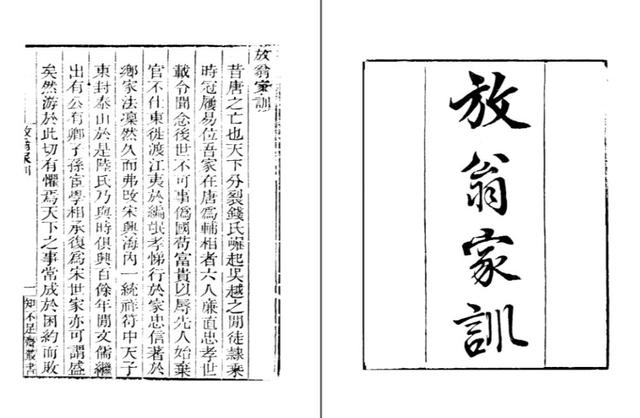 放翁家訓
放翁家訓
昔唐之亡也天下分裂錢氏崛起吳越之閒徒隸乘
時冠履易位吾家在唐爲輔相者六人廉直忠孝世
載令聞念後世不可事僞國苟富貴以辱先人始棄
官不仕東徙渡江夷於編氓孝悌行於家忠信著於
鄉家法凜然久而弗改宋興海內一統祥符中天子
東封泰山於是陸氏乃與時俱興百餘年閒文儒繼
出有公有卿子孫宦學相承復爲宋世家亦可謂盛
矣然游於此切有懼焉天下之事常成於困約而敗
放翁家訓 一 知不足齋叢書